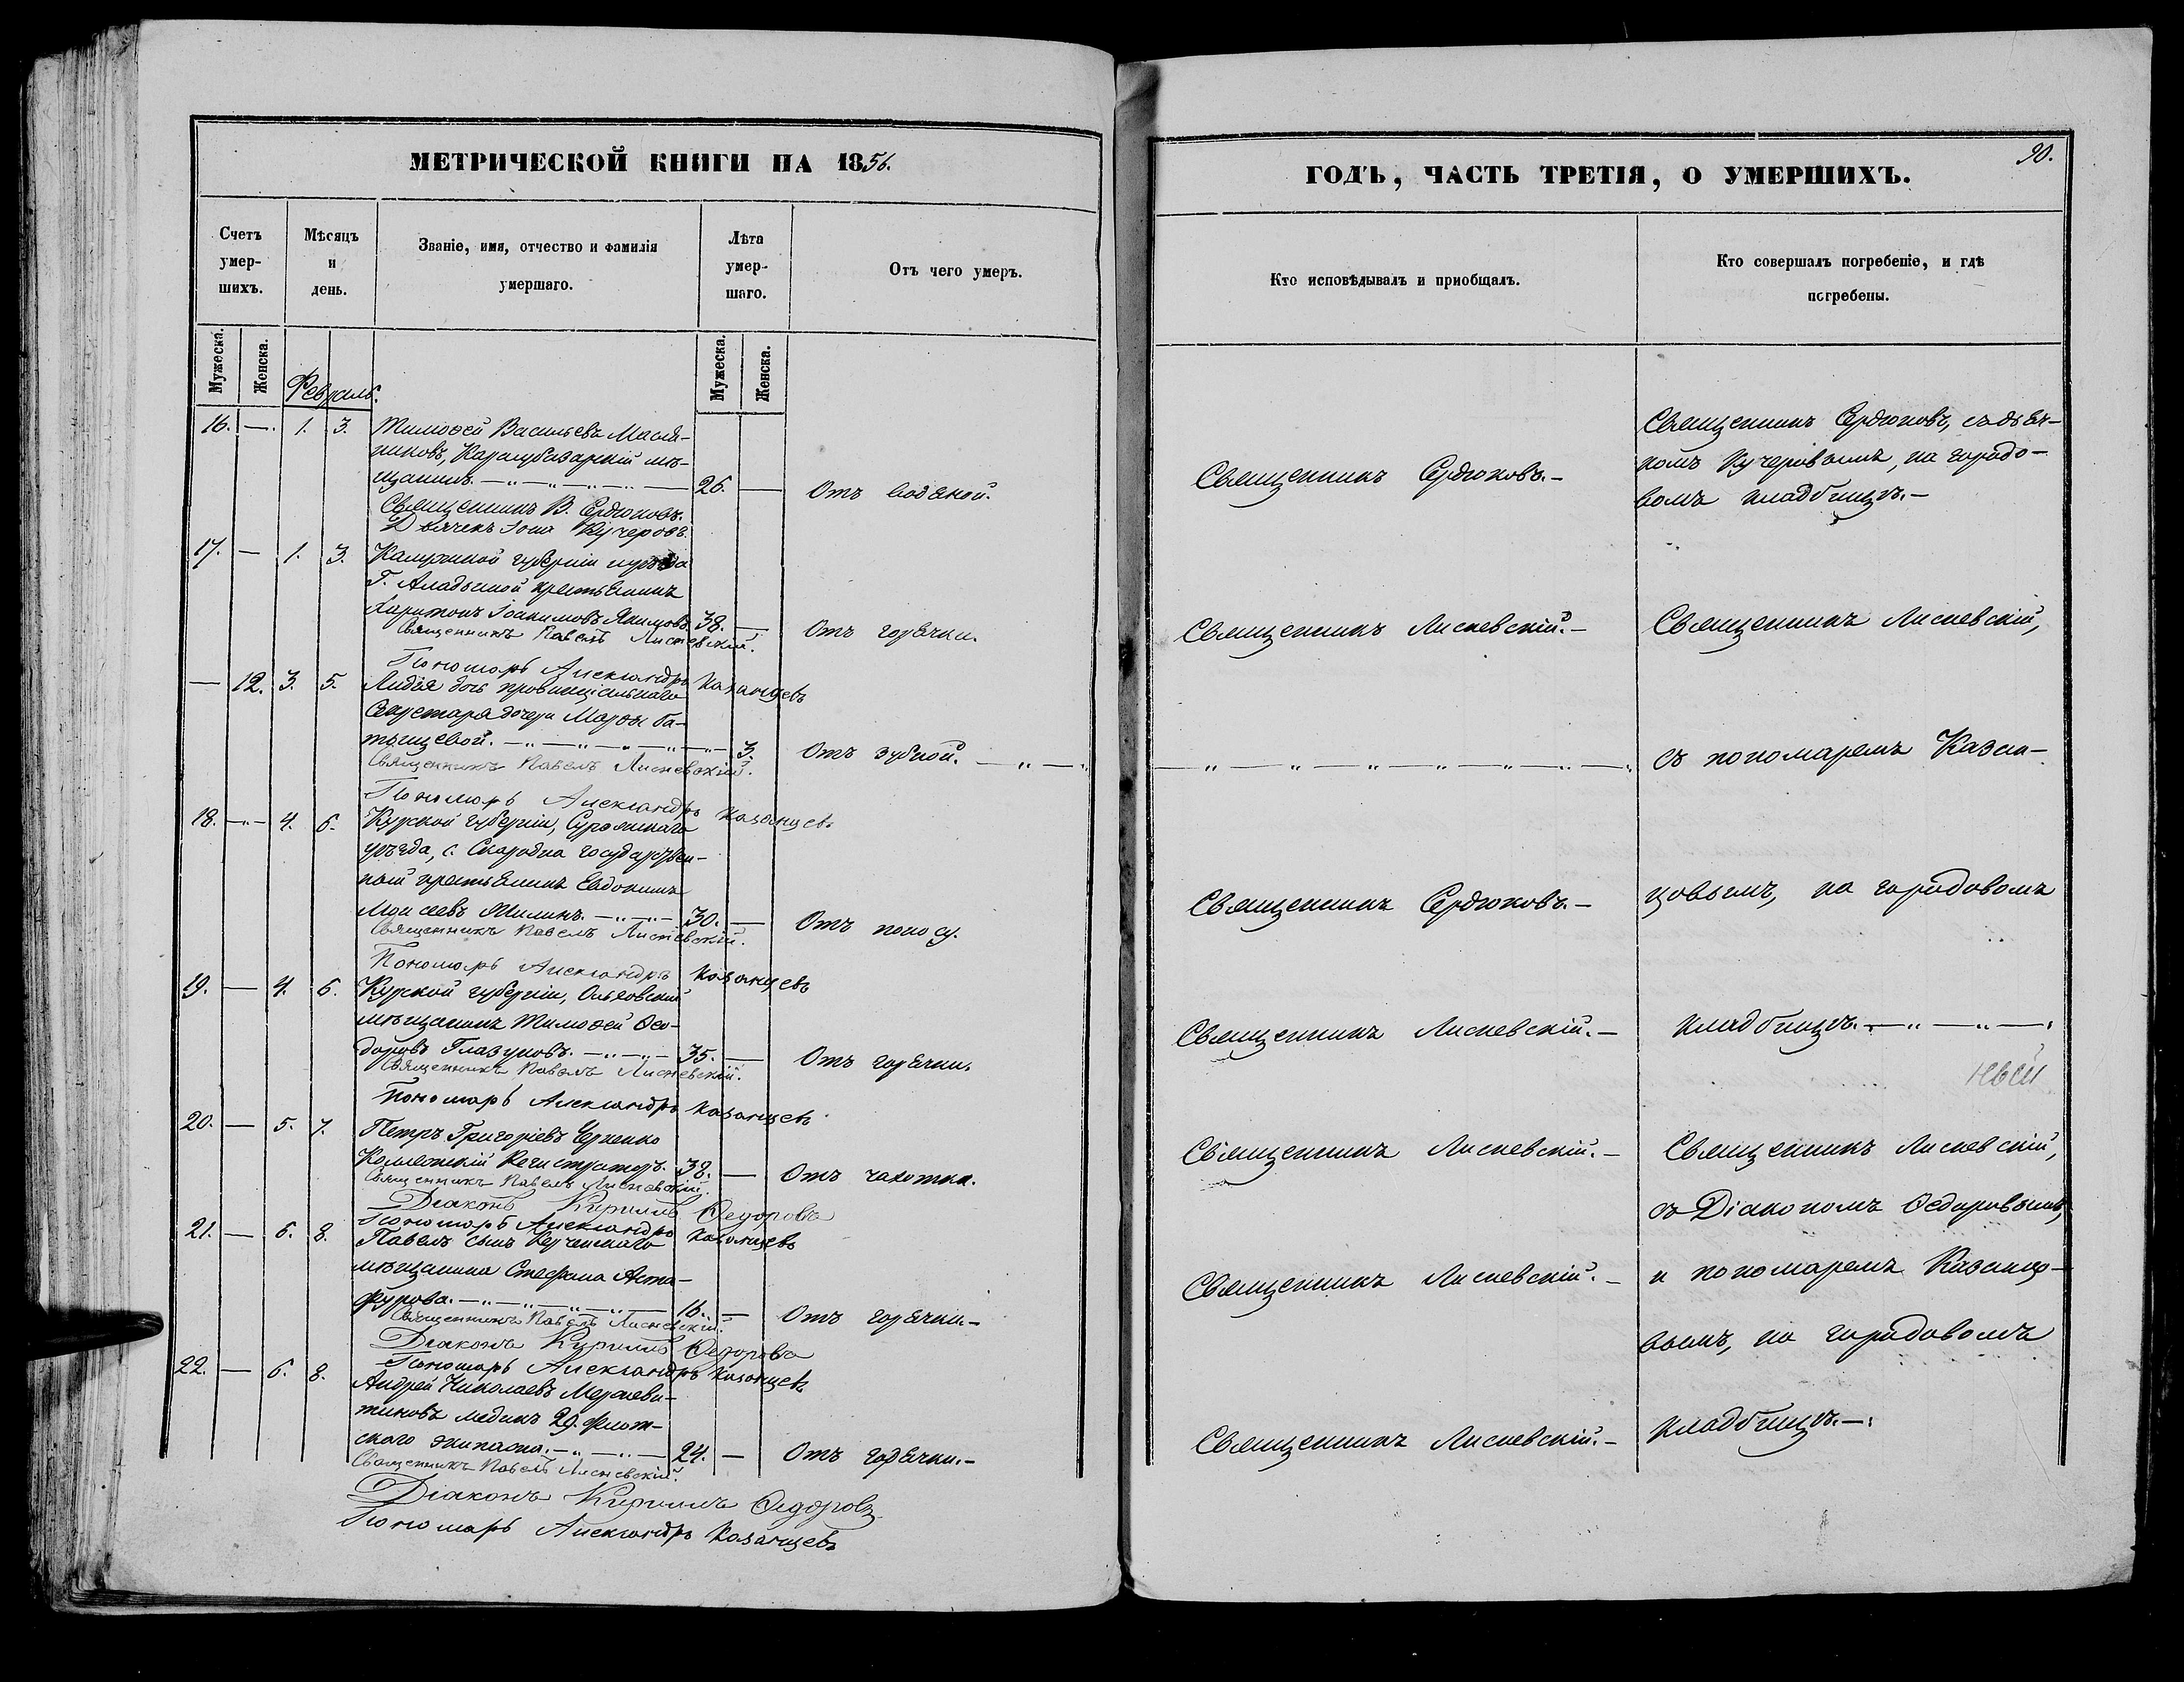 МЕТРИЧЕСКОЙ КНИГИ НА 1856.
Счетъ умер-шихъ.
Мѣсяцъ и день.
Званіе, имя, отчество и фамилія умершаго.
Лѣта умер-шаго.
Отъ чего умеръ.
Мужеска. Женска.
Февраль.
Мужеска. Женска.
16. — 1. 3. Тимофей Васильевъ Масля-
никовъ, Карасубазарскій мѣ-
щанинъ. 26. — Отъ водяной.
Священникъ В. Сердюковъ.
Дьячекъ Іона Кучеровъ.
17. — 1. 3. Калужской губерніи уѣзда
Г. крестьянинъ
Харитонъ Іоакимовъ Якимовъ 38. — Отъ горячки.
Священникъ Павелъ Лисневскій.
Пономарь Александръ Казанцевъ
— 12. 3. 5. Лидія дочь провинціальнаго
Секретаря дочери Марфы Ба-
тыщевой. 3. Отъ зубной.
Священникъ Павелъ Лисневскій.
Пономарь Александръ Казанцевъ
18. — 4. 6. Курской губерніи,
уѣзда, с. Скародна государствен-
ный крестьянинъ Евдокимъ
Моисеевъ 30. — Отъ поносу.
Священникъ Павелъ Лисневскій.
Пономарь Александръ Казанцевъ
19. — 4. 6. Курской губерніи,
мѣщанинъ Тимофей Ѳео-
доровъ Глазуновъ. 35. — Отъ горячки.
Священникъ Павелъ Лисневскій.
Пономарь Александръ Казанцевъ
20. — 5. 7. Петръ Григоріевъ
Коллежскій Регистраторъ. 38. — Отъ чахотки.
Священникъ Павелъ Лисневскій.
Діаконъ Кириллъ Ѳедоровъ
Пономарь Александръ Казанцевъ
21. — 6. 8. Павелъ сынъ Керченскаго
мѣщанина Стефана Аста-
фурова. 16. — Отъ горячки.
Священникъ Павелъ Лисневскій.
Діаконъ Кириллъ Ѳедоровъ
Пономарь Александръ Казанцевъ
22. — 6. 8. Андрей Николаевъ
медикъ 29. флот-
скаго экипажа. 24. — Отъ горячки.
Священникъ Павелъ Лисневскій.
Діаконъ Кириллъ Ѳедоровъ
Пономарь Александръ Казанцевъ
90.
ГОДЪ, ЧАСТЬ ТРЕТІЯ, О УМЕРШИХЪ.
Кто исповѣдывалъ и пріобщалъ.
Кто совершалъ погребеніе, и гдѣ погребены.
Священникъ Сердюковъ.
Священникъ Сердюковъ, съ дьяч-
комъ Кучеровымъ, на городо-
вомъ кладбищѣ.
Священникъ Лисневскій.
Священникъ Лисневскій,
съ пономаремъ Казан-
Священникъ Сердюковъ.
цовымъ, на городовомъ
Священникъ Лисневскій.
кладбищѣ.
Священникъ Лисневскій.
Священникъ Лисневскій,
съ Діакономъ Ѳедоровымъ,
Священникъ Лисневскій.
и пономаремъ Казанцо-
вымъ, на городовомъ
Священникъ Лисневскій.
кладбищѣ.